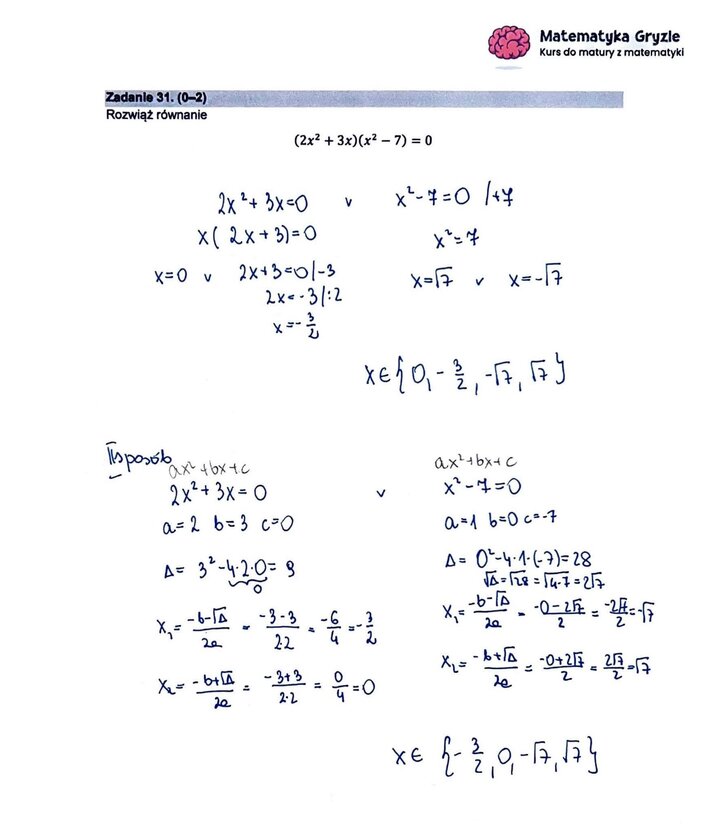 Matematyka Gryzie
Kurs do matury z matematyki
Zadanie 31. (0–2)
Rozwiąż równanie
(2x² + 3x)(x² − 7) = 0
2x² + 3x = 0 v x² - 7 = 0 /+7
x(2x+3) = 0 x² = 7
x=0 v 2x+3=0/-3 x=√7 v x=-√7
2x=-3/:2
x=-3/2
x∈{0, -3/2, -√7, √7}
II sposób
ax²+bx+c ax²+bx+c
2x²+3x=0 v x²-7=0
a=2 b=3 c=0 a=1 b=0 c=-7
Δ= 3²-4·2·0= 9 Δ= 0²-4·1·(-7)=28
0 √Δ=√28=√4·7=2√7
x₁= -b-√Δ/2a = -3-3/2·2 = -6/4 = -3/2 x₁= -b-√Δ/2a = -0-2√7/2 = -2√7/2 = -√7
x₂= -b+√Δ/2a = -3+3/2·2 = 0/4 = 0 x₂= -b+√Δ/2a = -0+2√7/2 = 2√7/2 = √7
x∈ {-3/2, 0, -√7, √7}